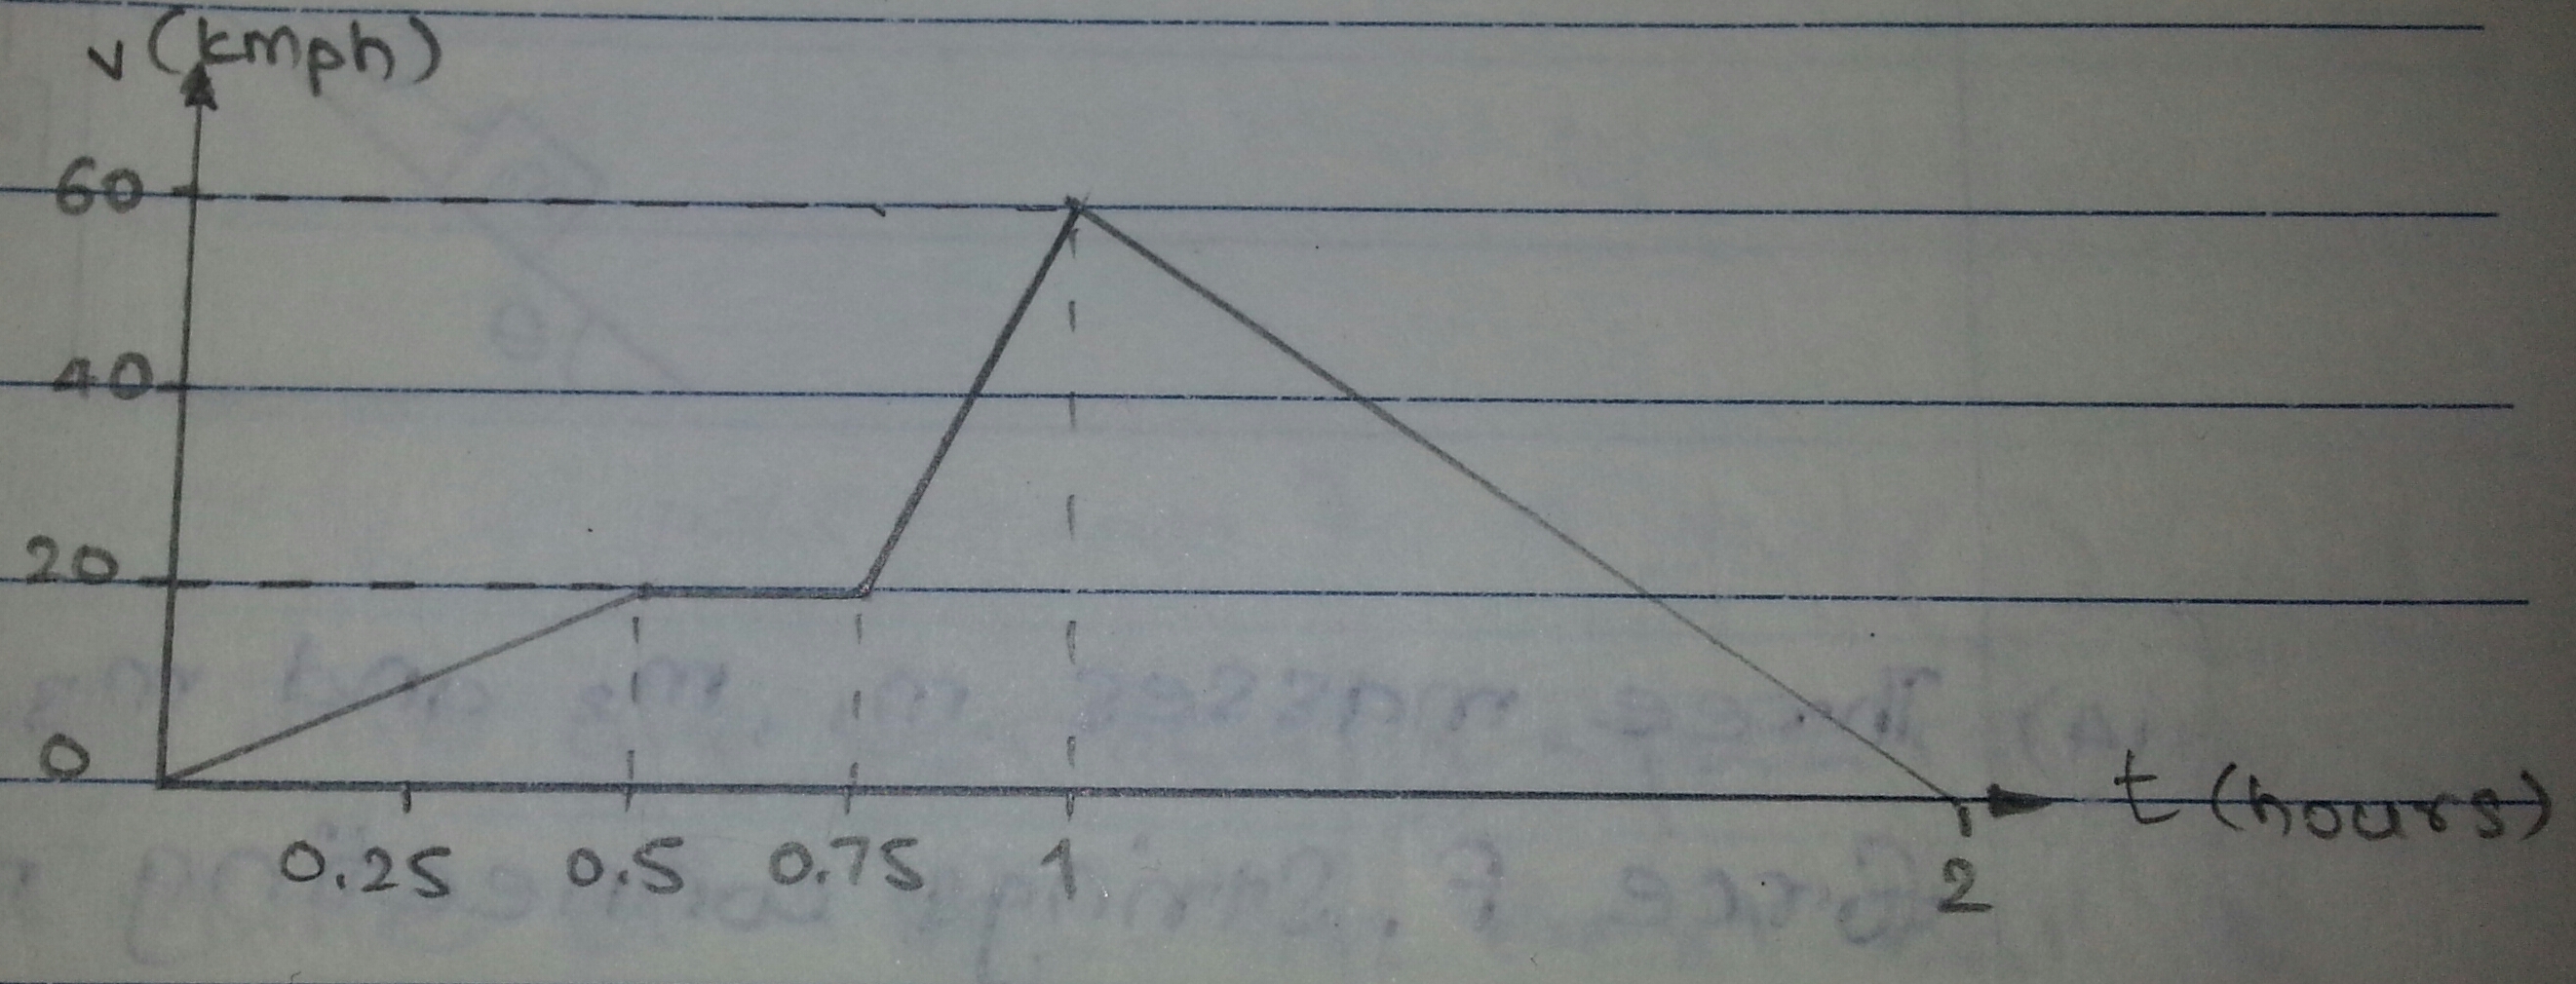 v (kmph)
60
40
20
0
0.25 0.5 0.75 1 2
t (hours)